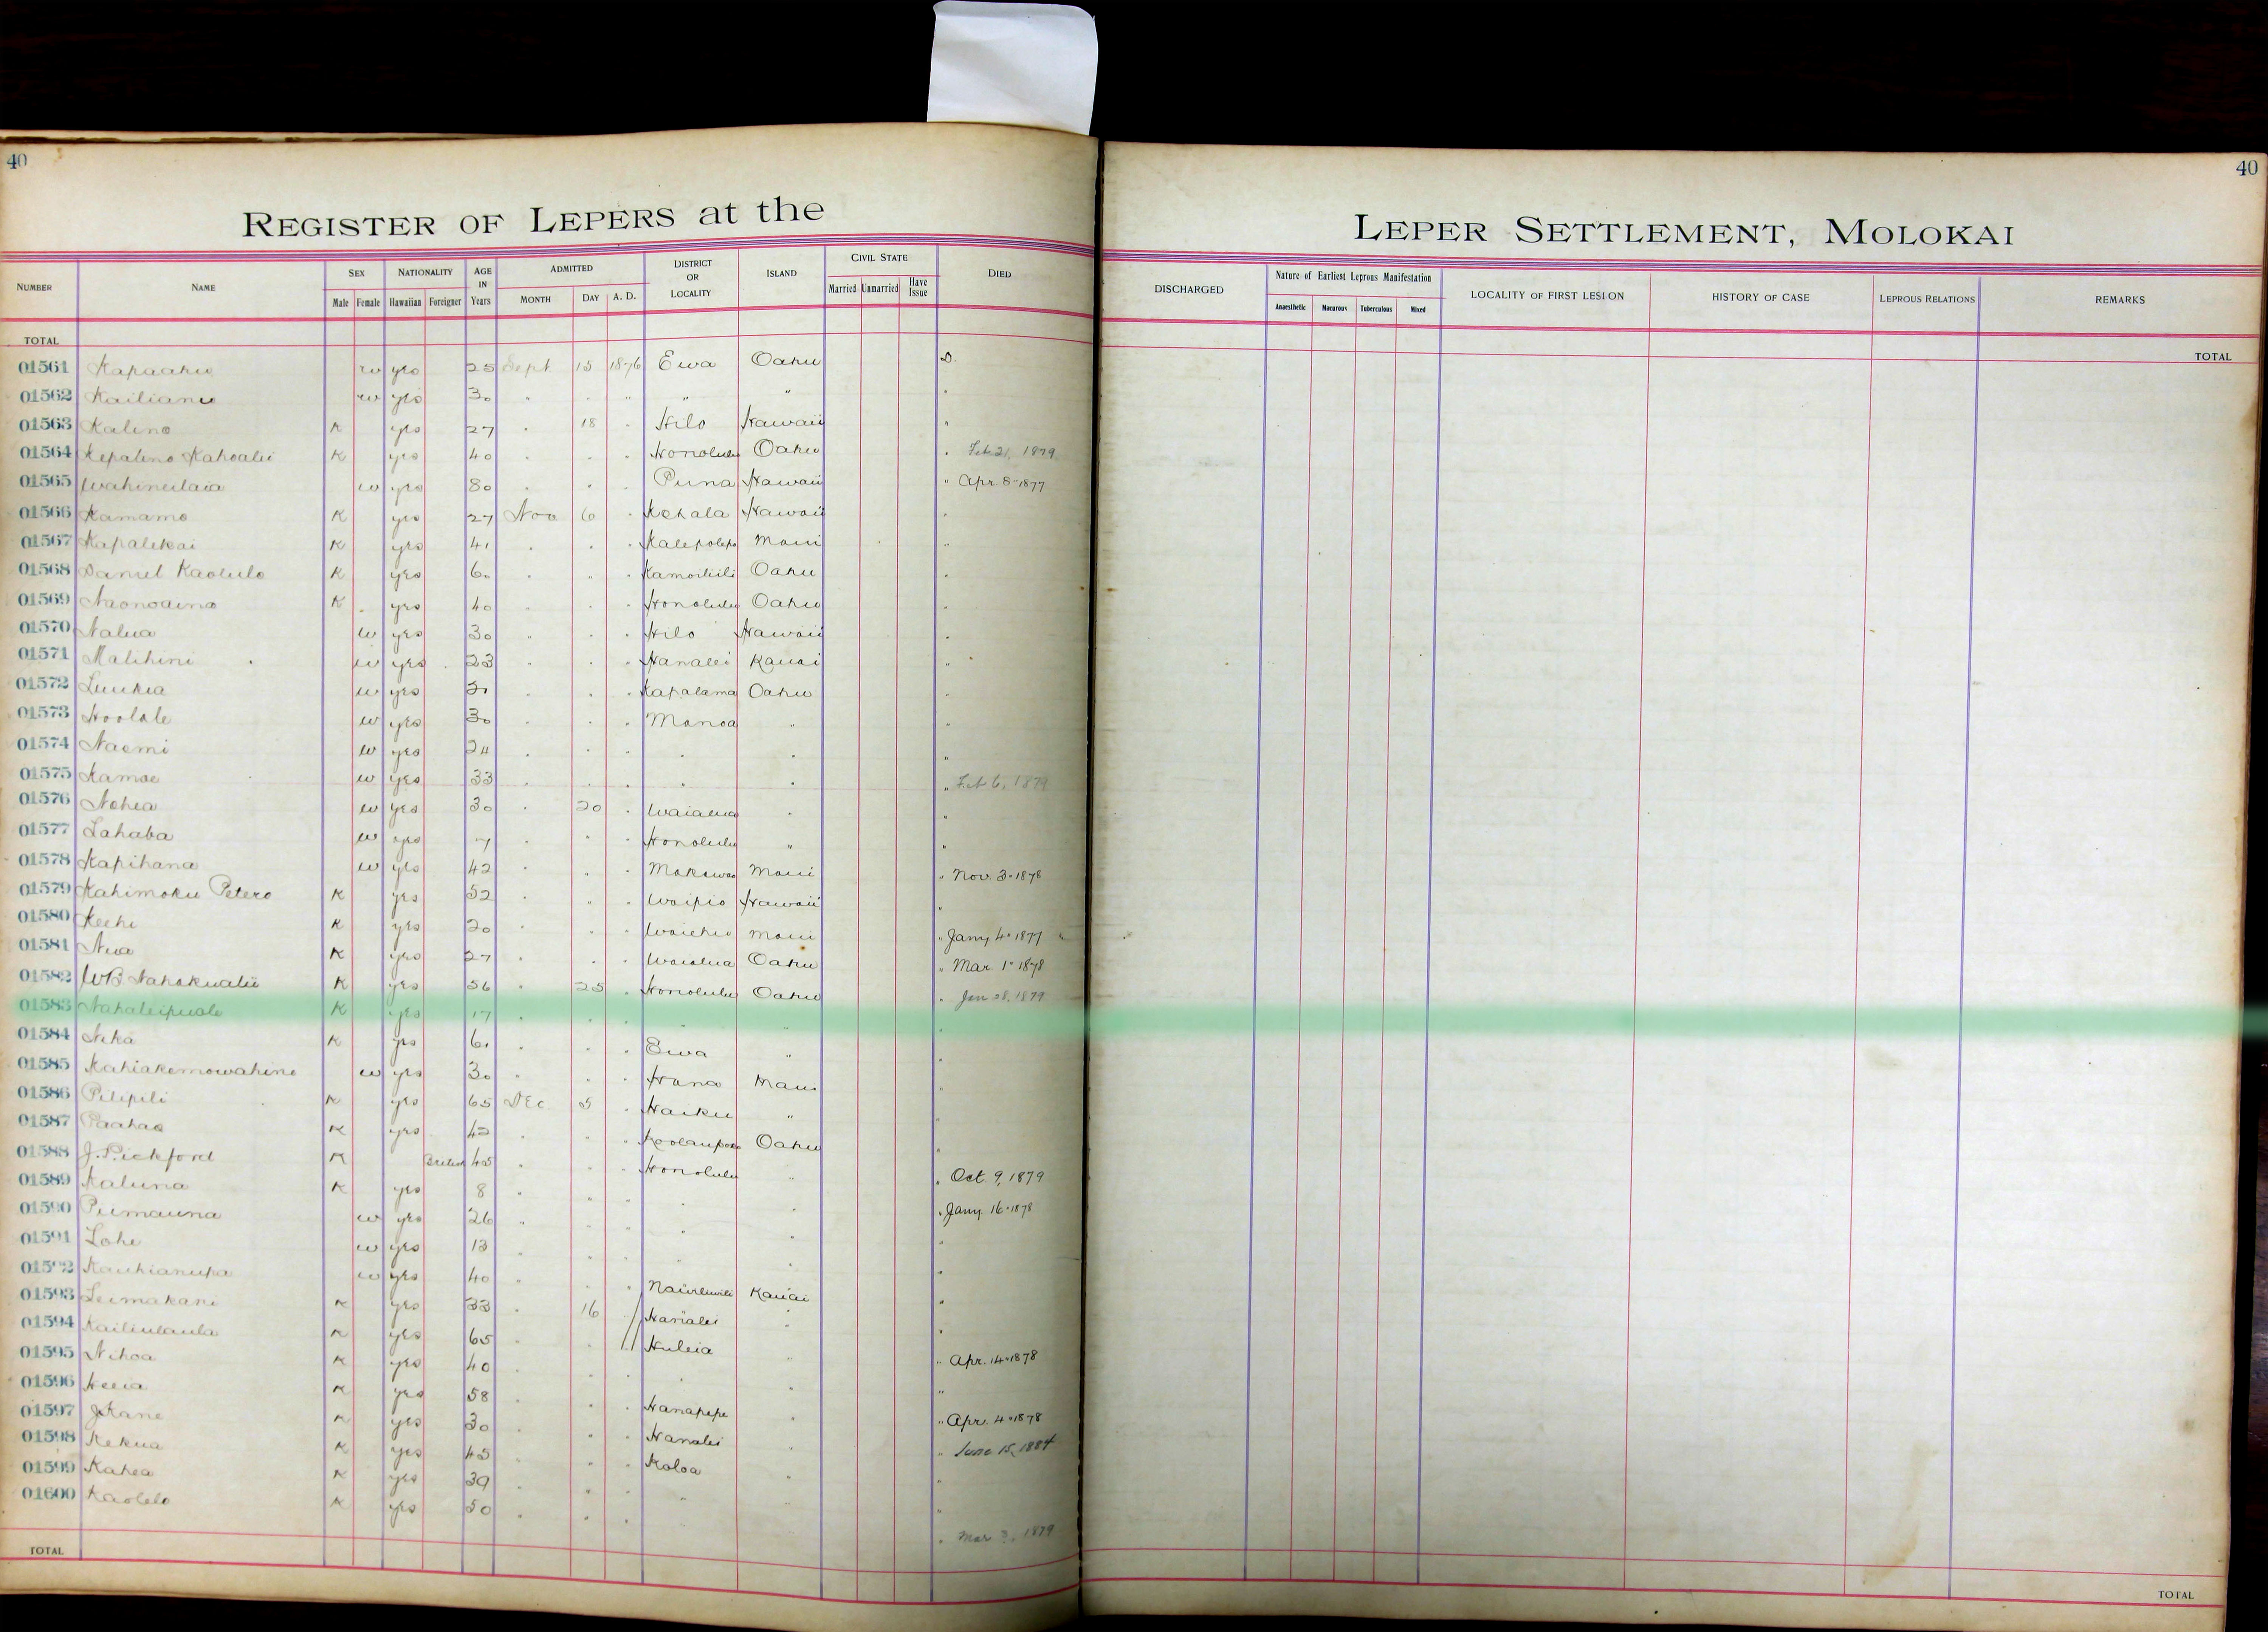 40
40
REGISTER OF LEPERS at the
LEPER SETTLEMENT, MOLOKAI
NUMBER NAME SEX NATIONALITY AGE IN Years ADMITTED DISTRICT OR LOCALITY ISLAND CIVIL STATE DIED
Male Female Hawaiian Foreigner MONTH DAY A. D. Married Unmarried Have Issue
DISCHARGED Nature of Earliest Leprous Manifestation LOCALITY OF FIRST LESION HISTORY OF CASE LEPROUS RELATIONS REMARKS
Anaesthetic Macurous Tuberculous Mixed
TOTAL
TOTAL
01561 Kapaahu w yes 25 Sept 15 1876 Ewa Oahu D.
01562 Kailianu w yes 30 " " " " " "
01563 Kalino K yes 27 " 18 " Hilo Hawaii "
01564 Kepalino Kahoalii K yes 40 " " " Honolulu Oahu " Feb 21, 1879
01565 Wahineilaia w yes 80 " " " Puna Hawaii " Apr. 8-1877
01566 Kamamo K yes 27 Nov 6 " Kohala Hawaii "
01567 Kapalikai K yes 41 " " " Kalepolepo Maui "
01568 Daniel Kaolulo K yes 60 " " " Kamoiliili Oahu "
01569 Naonoaina K yes 40 " " " Honolulu Oahu "
01570 Nalua w yes 30 " " " Hilo Hawaii "
01571 Malihini w yes 23 " " " Hanalei Kauai "
01572 Luukia w yes 31 " " " Kapalama Oahu "
01573 Hoolale w yes 30 " " " Manoa " "
01574 Naomi w yes 24 " " " " " "
01575 Kamae w yes 33 " " " " " " Feb 6, 1879
01576 Nohea w yes 30 " 20 " Waialua " "
01577 Lahaba w yes 7 " " " Honolulu " "
01578 Kapihana w yes 42 " " " Makawao Maui " Nov. 3-1878
01579 Kahimoku Petero K yes 52 " " " Waipio Hawaii "
01580 Keehi K yes 20 " " " Waiehu Maui " Jany 4-1877 "
01581 Niua K yes 27 " " " Waialua Oahu " Mar. 1-1878
01582 WB Nahokualii K yes 56 " 25 " Honolulu Oahu " Jan 28, 1879
01583 Nahaleipuole K yes 17 " " " " " "
01584 Nika K yes 61 " " " Ewa " "
01585 Kahiakemowahine w yes 30 " " " Hana Maui "
01586 Pilipili K yes 65 Dec 5 " Haiku " "
01587 Paahao K yes 42 " " " Koolaupoko Oahu "
01588 J. Pickford K British 45 " " " Honolulu " " Oct. 9, 1879
01589 Kaluna K yes 8 " " " " " " Jany 16-1878
01590 Piimauna w yes 26 " " " " " "
01591 Lohe w yes 13 " " " " " "
01592 Kauhianupa w yes 40 " " " Nawiliwili Kauai "
01593 Leimakani K yes 33 " 16 " Hanalei " "
01594 Kailiulaula K yes 65 " " " Huleia " " Apr. 14-1878
01595 Nihoa K yes 40 " " " " " "
01596 Heeia K yes 58 " " " Hanapepe " " Apr. 4-1878
01597 J Kane K yes 30 " " " Hanalei " " June 15, 1884
01598 Kekua K yes 45 " " " Koloa " "
01599 Kahea K yes 39 " " " " " "
01600 Kaolelo K yes 50 " " " " Mar 3, 1879
TOTAL
TOTAL